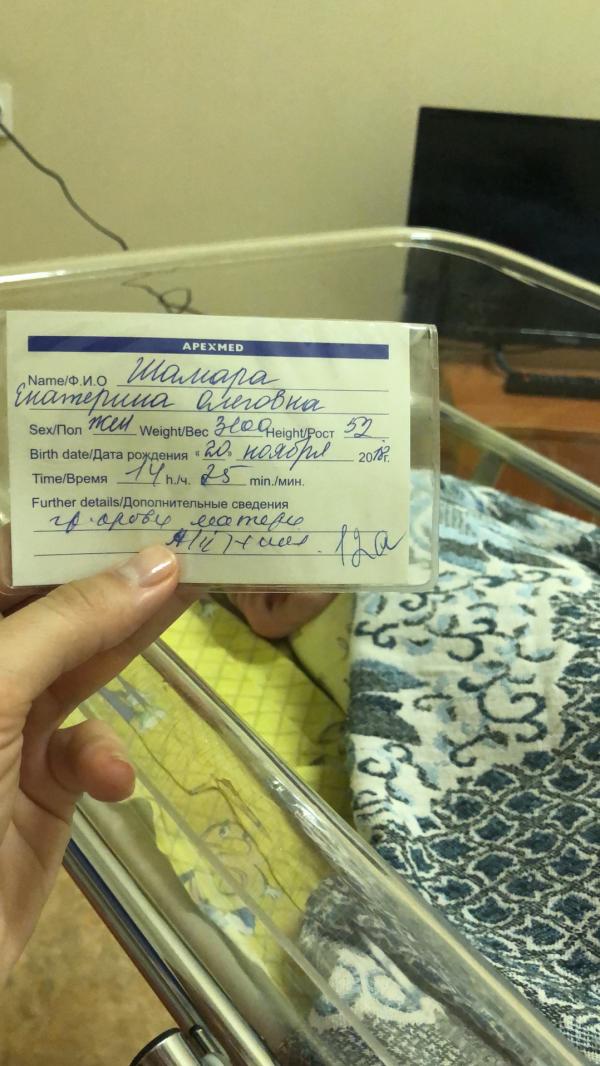 APEXMED
Name/Ф.И.О Шамара
Екатерина Олеговна
Sex/Пол жен Weight/Вес 3100 Height/Рост 52
Birth date/Дата рождения «20» ноября 2018г.
Time/Время 14 h./ч. 25 min./мин.
Further details/Дополнительные сведения
гр. крови матери
A(II)
12а